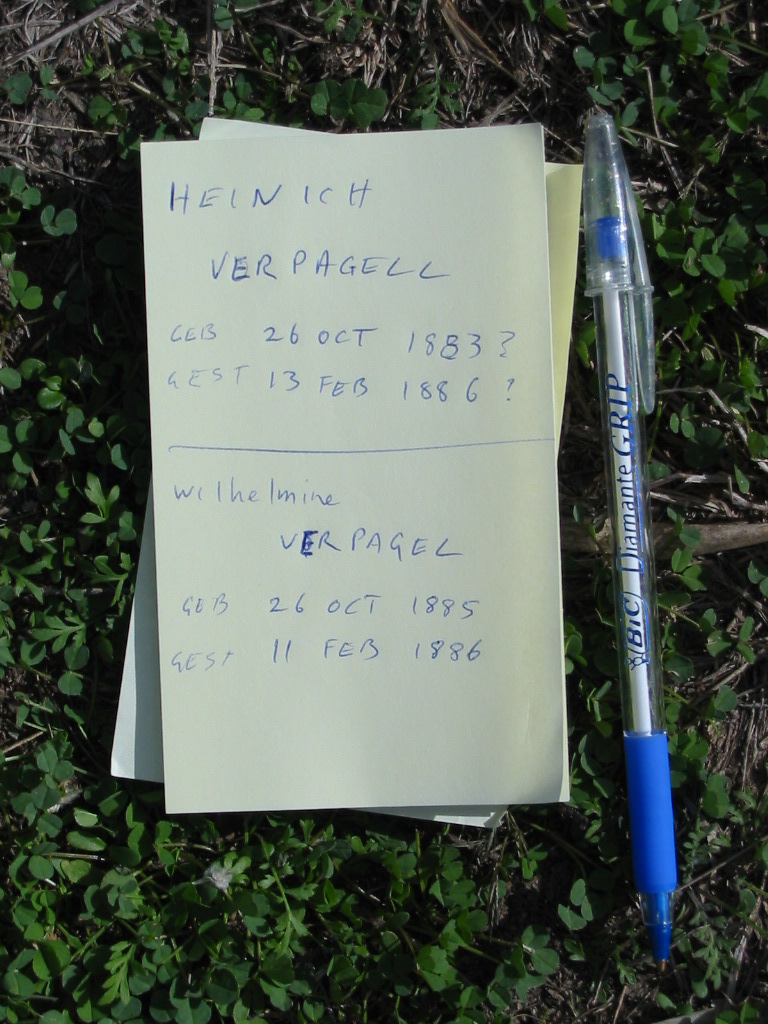 HEINICH
VERPAGELL
GEB 26 OCT 1883?
GEST 13 FEB 1886?
Wilhelmine
VERPAGEL
GEB 26 OCT 1885
GEST 11 FEB 1886
BIC Diamante GRIP